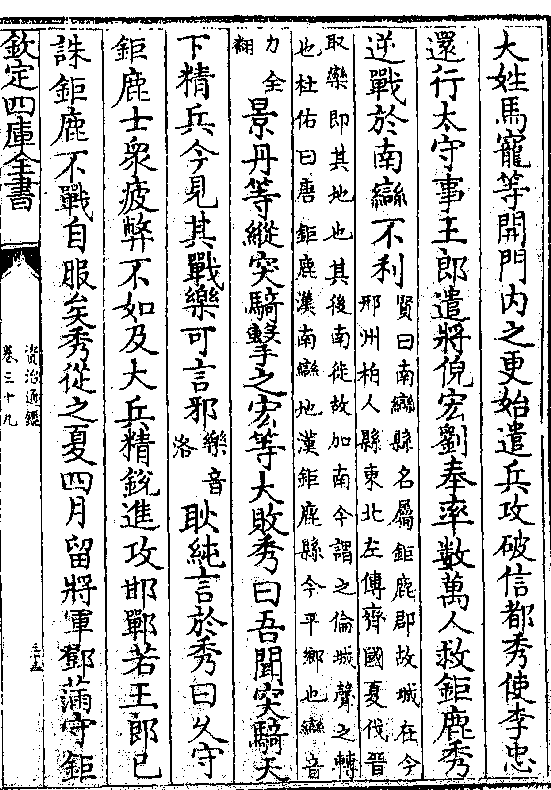 大姓馬寵等開門内之更始遣兵攻破信都秀使李忠
還行太守事王郎遣將倪宏劉奉率數萬人救鉅鹿秀
逆戰於南䜌不利
賢曰南䜌縣名屬鉅鹿郡故城在今
邢州柏人縣東北左傳齊國夏伐晉
取欒即其地也其後南徙故加南今謂之倫城聲之轉
也杜佑曰唐鉅鹿漢南䜌地漢鉅鹿縣今平鄉也䜌音
力全
翻
景丹等縱突騎擊之宏等大敗秀曰吾聞突騎天
下精兵今見其戰樂可言邪
樂音
洛
耿純言於秀曰久守
鉅鹿士衆疲弊不如及大兵精銳進攻邯鄲若王郎已
誅鉅鹿不戰自服矣秀從之夏四月留將軍鄧滿守鉅
欽定四庫全書
資治通鑑
卷三十九